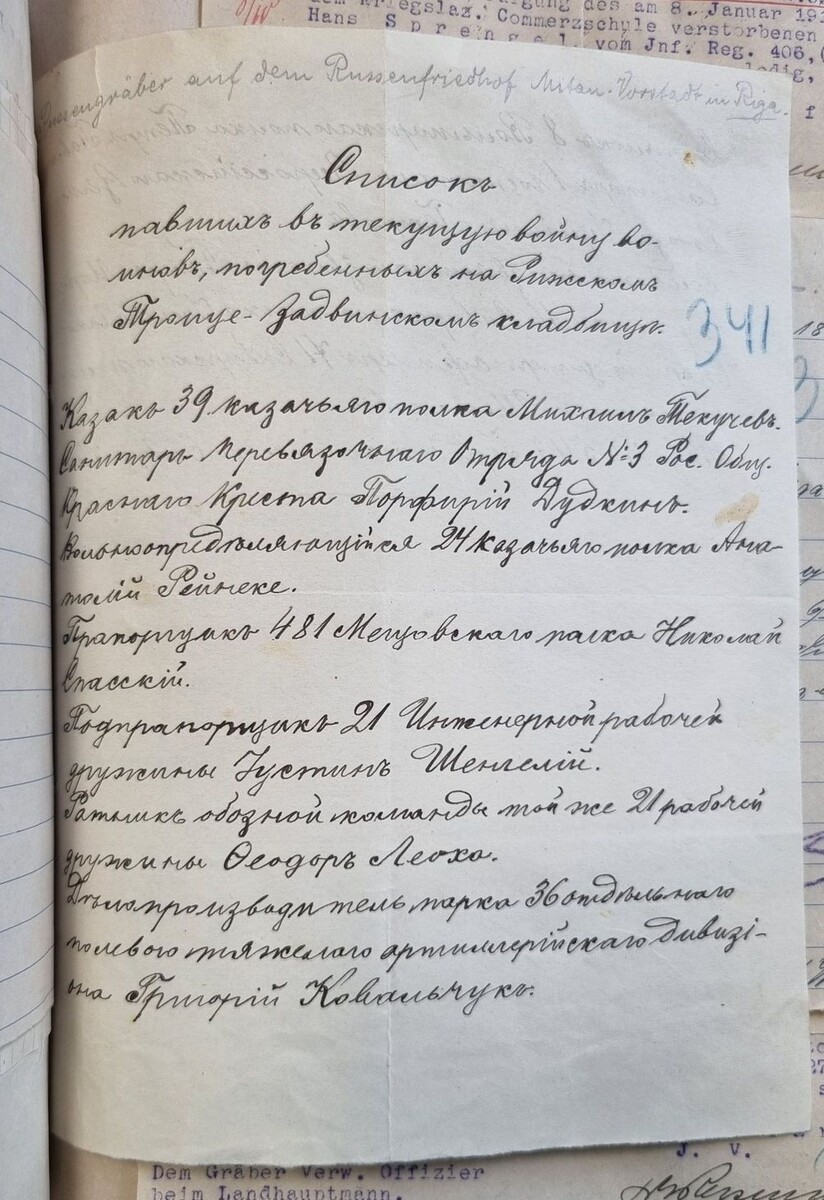 des am 8. Januar
Kriegslaz. Commerzschule verstorbenen
Hans Sprengel, vom Jnf. Reg. 406,
auf dem Russenfriedhof Mitau. Vorstadt in Riga.
Списокъ
павшихъ въ текущую войну во-
иновъ, погребенныхъ на Рижскомъ
Троице-Задвинскомъ кладбищѣ.
341
Казакъ 39 казачьяго полка Михаилъ Текучевъ.
Санитаръ Перевязочнаго Отряда №3 Рос. Общ.
Краснаго Креста Порфирій Дудкинъ.
Вольноопредѣляющійся 24 казачьяго полка Ана-
толій Рейнеке.
Прапорщикъ 481 Мещовскаго полка Николай
Спасскій.
Подпрапорщикъ 21 Инженерной рабочей
дружины Іустинъ Шенгелій.
Ратникъ обозной команды той же 21 рабочей
дружины Ѳеодоръ Леоха.
Дѣлопроизводитель парка 36 отдѣльнаго
полевого тяжелаго артиллерійскаго дивизі-
она Григорій Ковальчукъ.
J. V.
Dem Gräber Verw. Offizier
beim Landhauptmann.